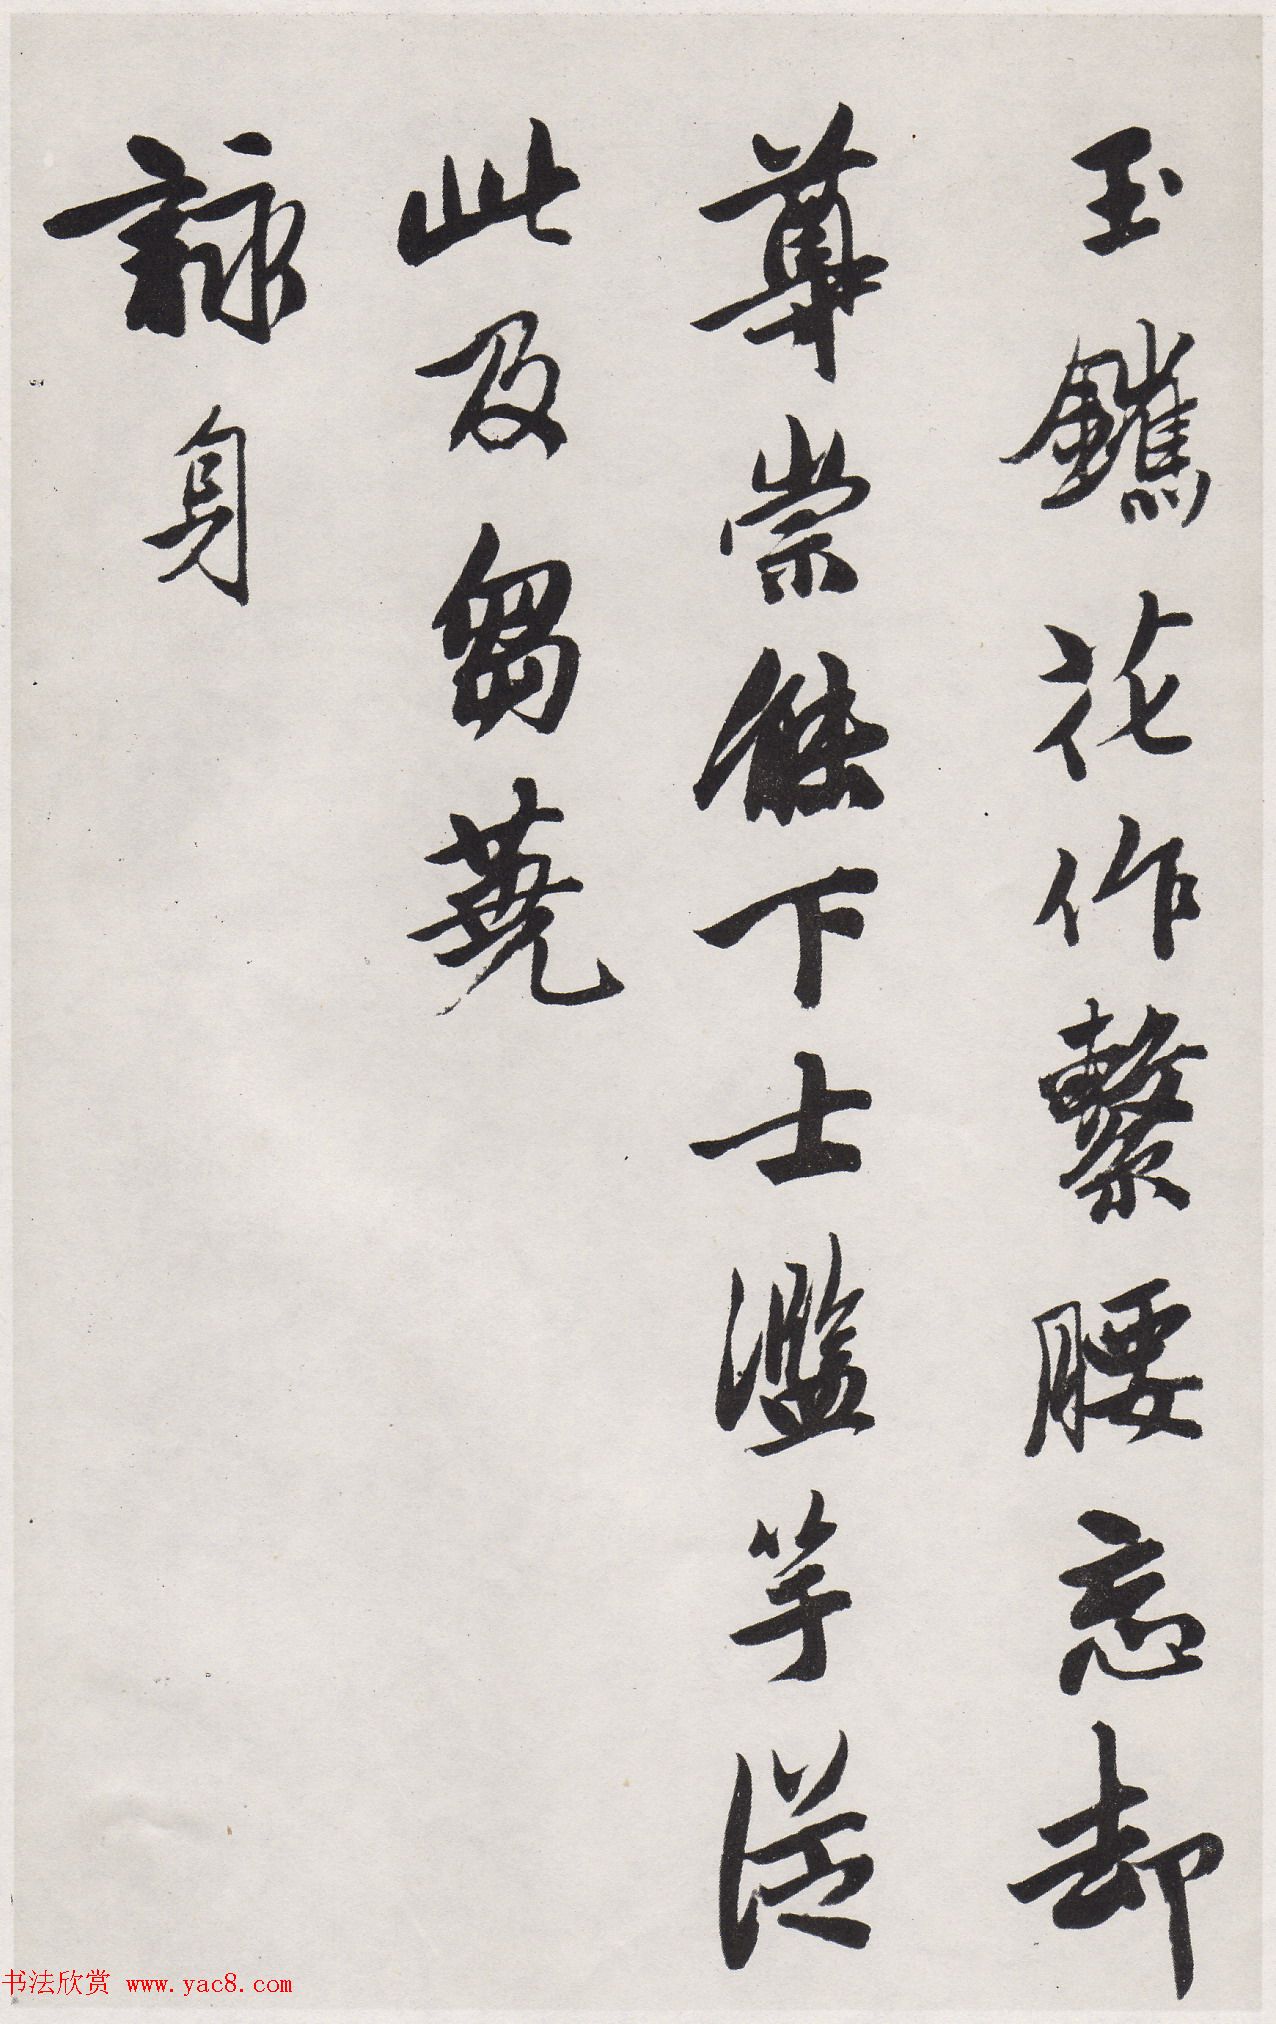 玉鑱花作繫腰忘却
尊崇餘下士濫竽從
此及芻蕘
詠身
书法欣赏 www.yac8.com